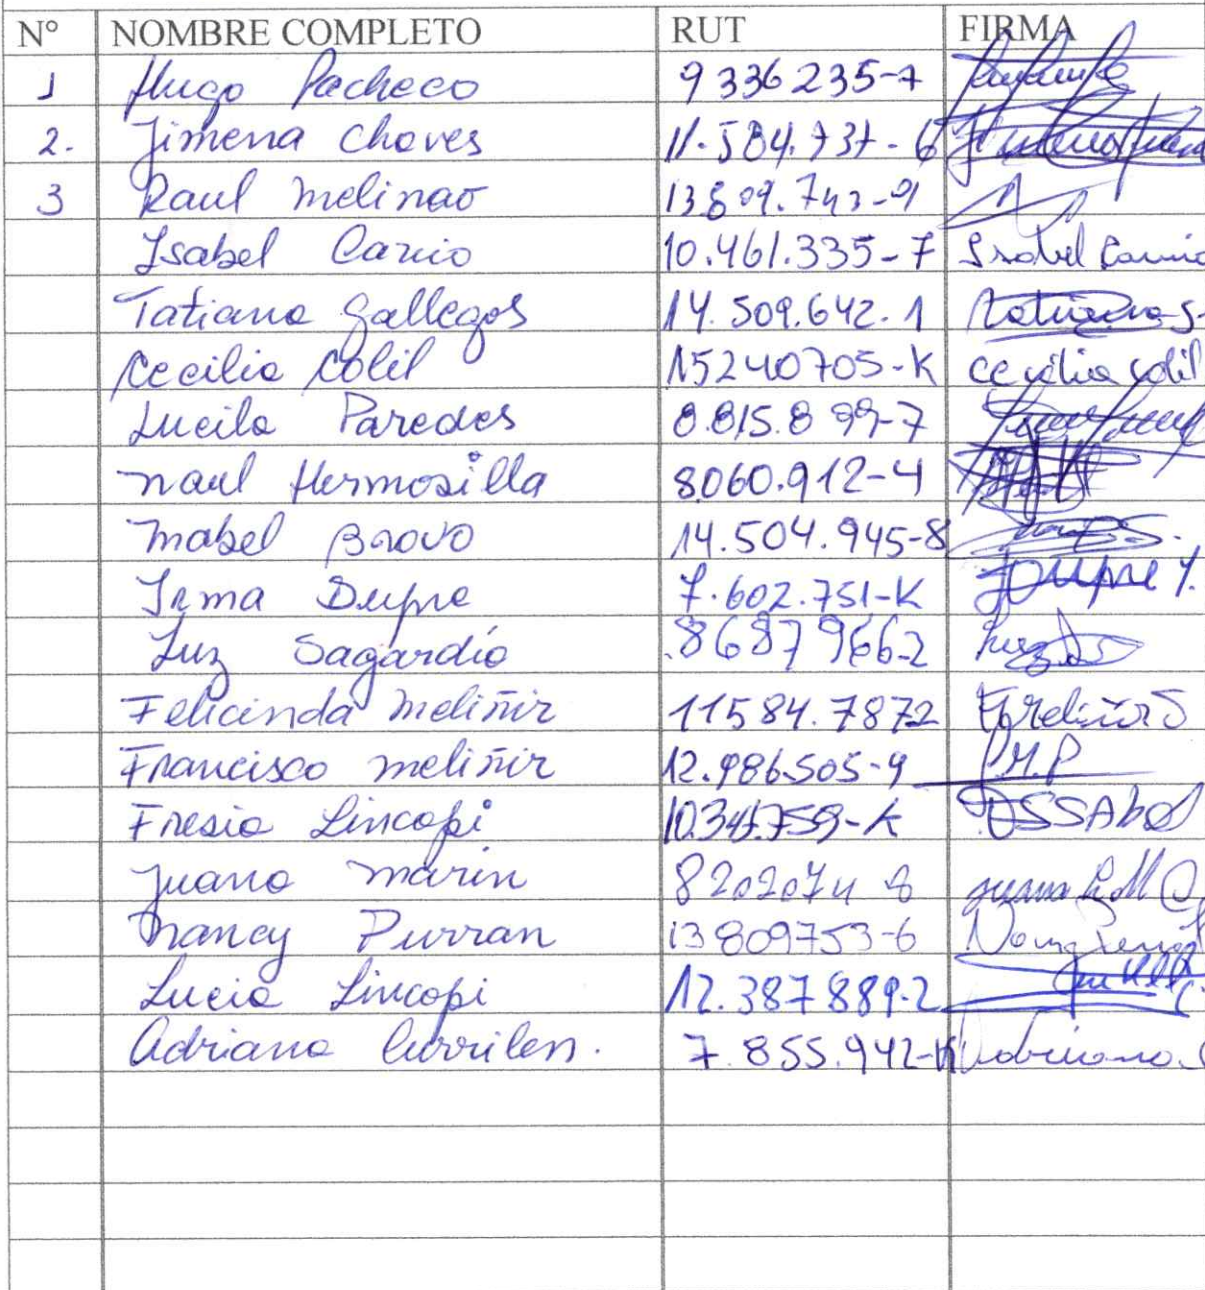 N° NOMBRE COMPLETO RUT FIRMA
1 Hugo Pacheco 9336235-7
2. Jimena Chaves 11.584.737-6
3 Raul Melinao 13.809.743-9
Isabel Cario 10.461.335-7 Isabel Cario
Tatiana Gallegos 14.509.642.1 Tatiana G.
Cecilia Colil 15240705-K Cecilia Colil
Lucila Paredes 8.815.899-7
Raul Hermosilla 8060.912-4
Mabel Bravo 14.504.945-8
Irma Dupre 7.602.751-K Dupre Y.
Luz Sagardía 86879662
Felicinda Meliñir 11584.7872
Francisco Meliñir 12.986.505-9 F.M.P
Fresia Lincopi
Juana Marin Juana
Nancy Purran 13809753-6
Lucia Lincopi 12.387889-2
Adriana Currilen. 7.855.942-K Adriana